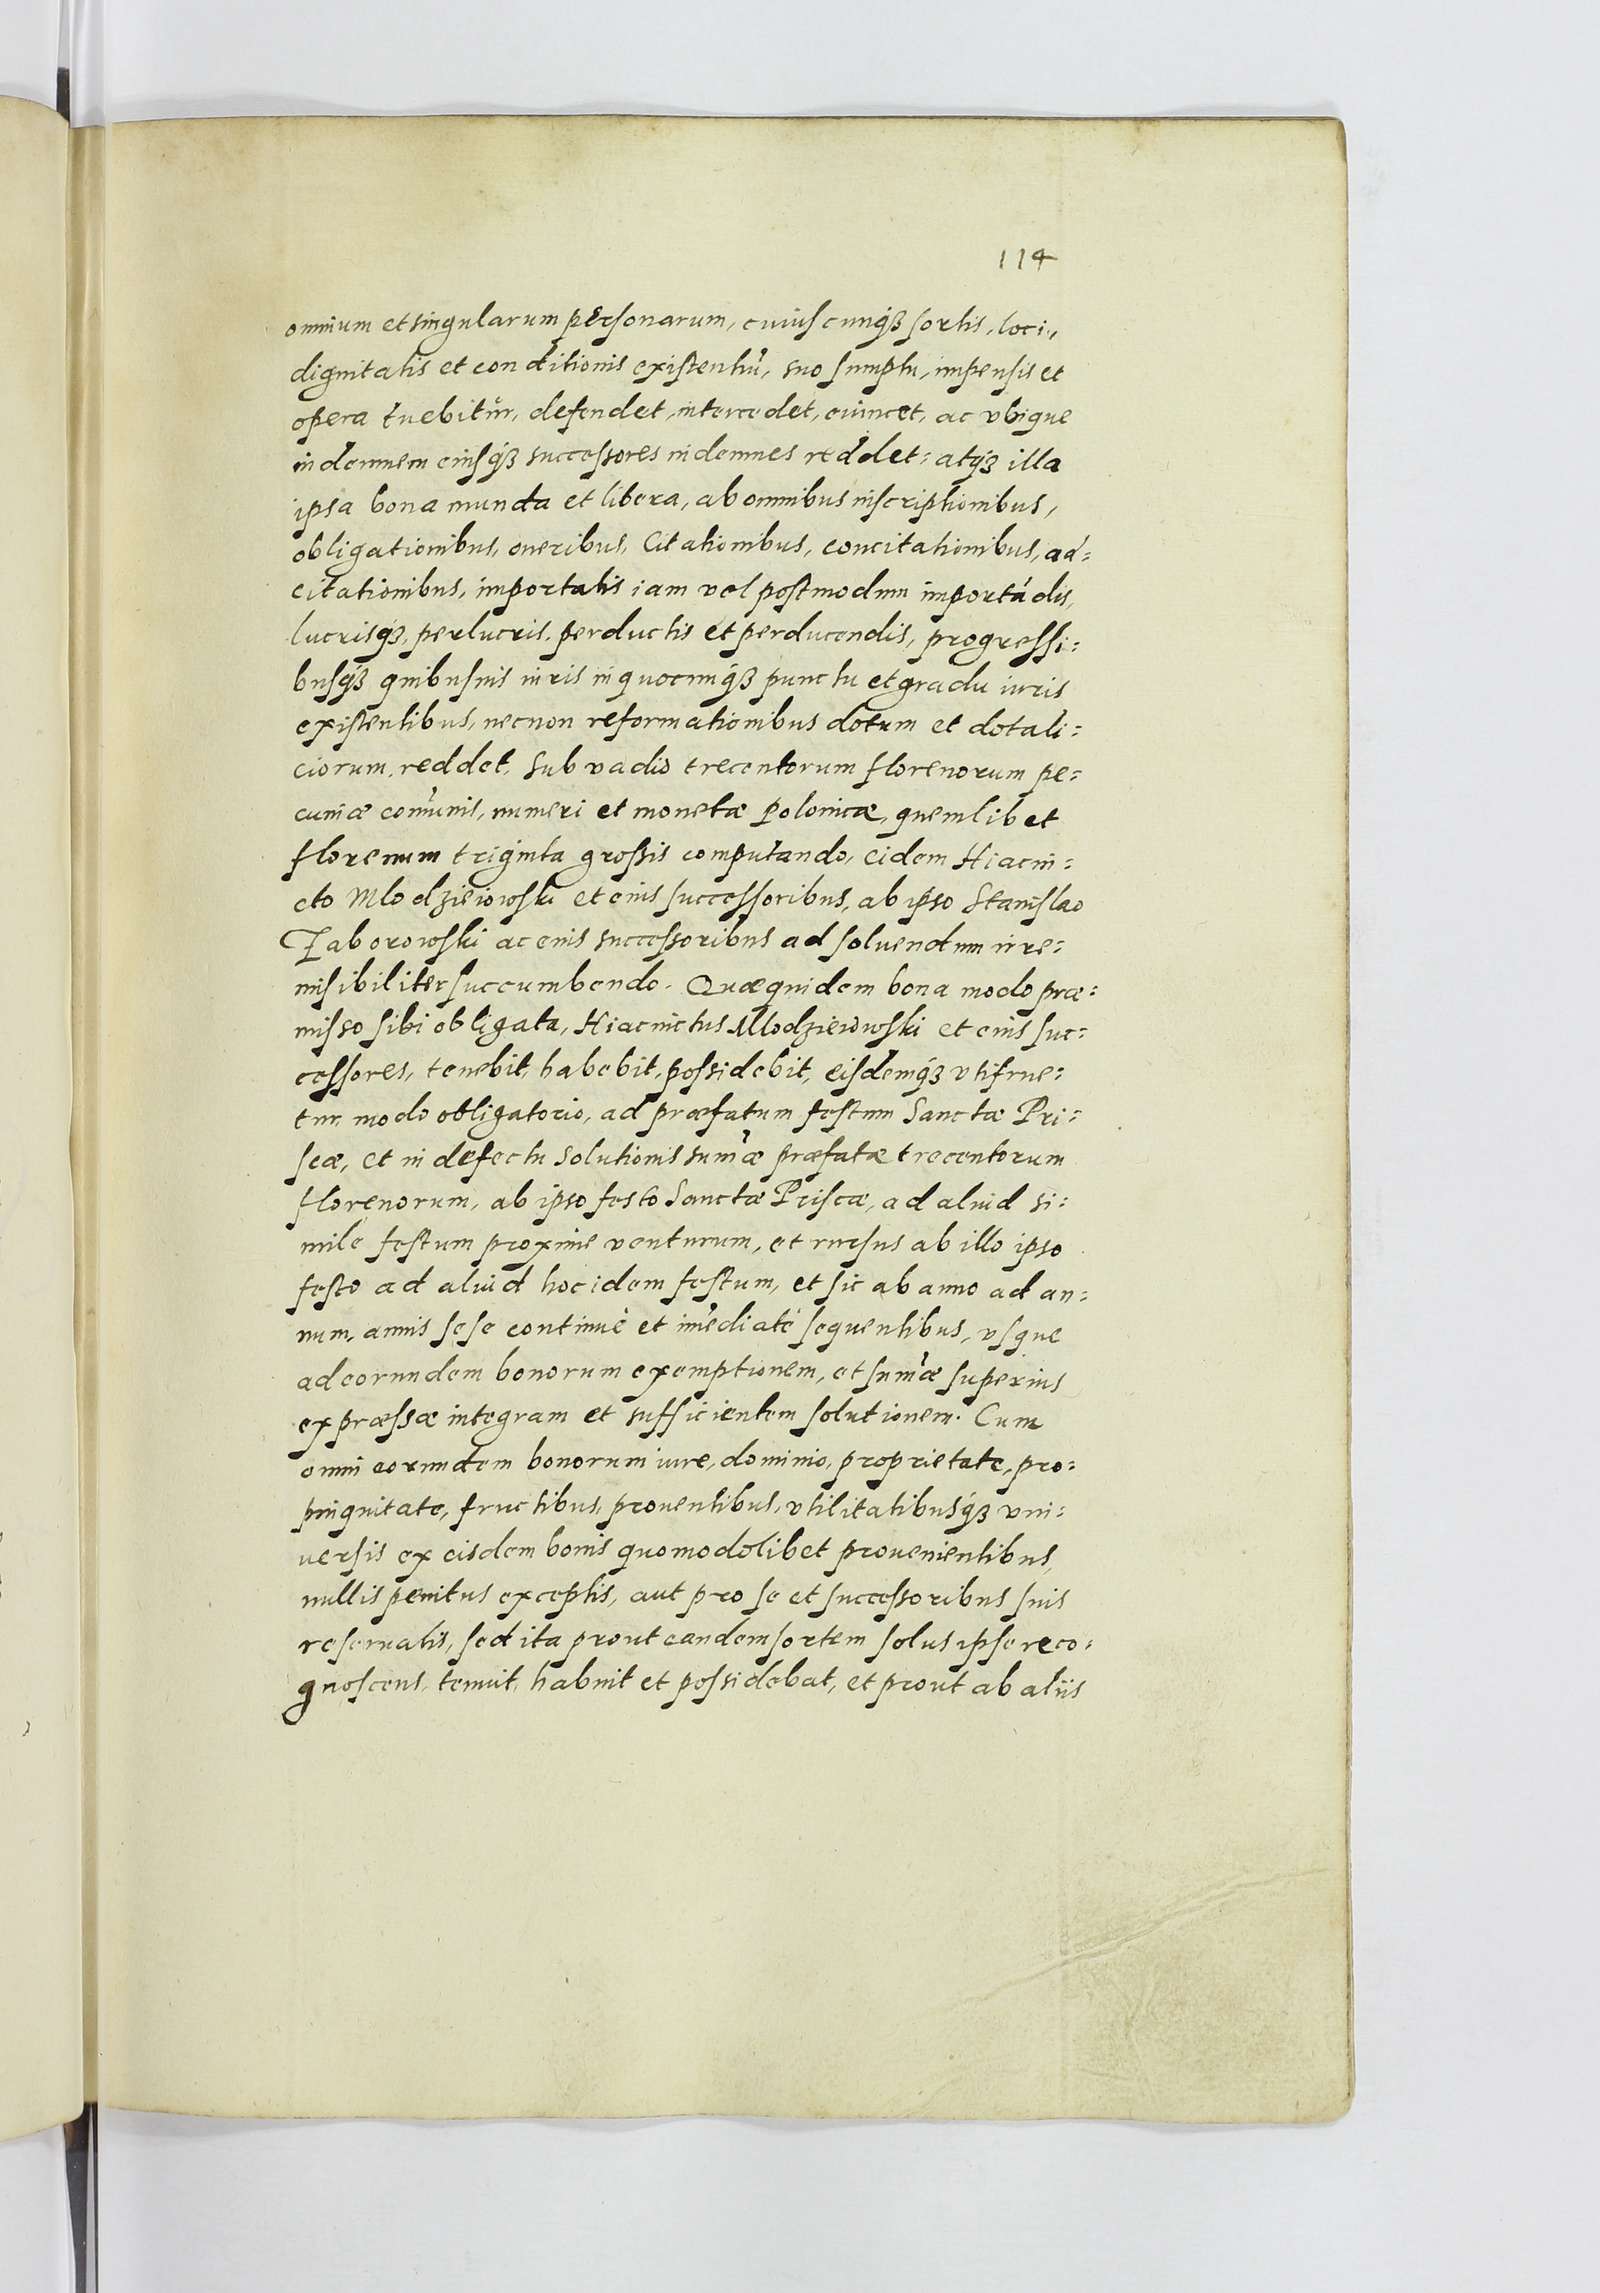 114
omnium et singularum personarum, cuiuscunqꝫ sortis, loci,
dignitatis et conditionis existentiū, suo sumptu, impensis et
opera tuebitur, defendet, intercedet, euincet, ac vbique
indemnem eiusqꝫ successores indemnes reddet: atqꝫ illa
ipsa bona munda et libera, ab omnibus inscriptionibus,
obligationibus, oneribus, Citationibus, concitationibus, ad=
citationibus, importatis iam vel postmodum importādis,
lucrisqꝫ, perlucris, perductis et perducendis, progressi=
busqꝫ quibusuis iuris in quocunqꝫ punctu et gradu iuris
existentibus, necnon reformationibus dotum et dotali=
ciorum, reddet, sub vadio trecentorum florenorum pe=
cuniæ com̄unis, numeri et monetæ Polonicæ, quemlibet
florenum triginta grossis computando, eidem Hiacin=
cto Mlodzieiowski et eius successoribus, ab ipso Stanislao
Taborowski ac eius successoribus ad soluendum irre=
misibiliter succumbendo. Quæquidem bona modo præ=
misso sibi obligata, Hiacinctus Mlodzieiowski et eius suc=
cessores, tenebit, habebit, possidebit, eisdemqꝫ vtifrue=
tur modo obligatorio, ad præfatum festum Sanctæ Pri=
scæ, et in defectu solutionis sum̄æ præfatæ trecentorum
florenorum, ab ipso festo Sanctæ Priscæ, ad aliud si=
mile festum proxime venturum, et rursus ab illo ipso
festo ad aliud hoc idem festum, et sic ab anno ad an=
num, annis sese continuè et im̄ediatè sequentibus, vsque
ad eorundem bonorum exemptionem, et sum̄æ superius
expræssæ integram et sufficientem solutionem. Cum
omni eorundem bonorum iure, dominio, proprietate, pro=
pinquitate, fructibus, prouentibus, vtilitatibusqꝫ vni=
uersis ex eisdem bonis quomodolibet prouenientibus,
nullis penitus exceptis, aut pro se et successoribus suis
reseruatis, sed ita prout eandem sortem solus ipse reco=
gnoscens, tenuit, habuit et possidebat, et prout ab aliis